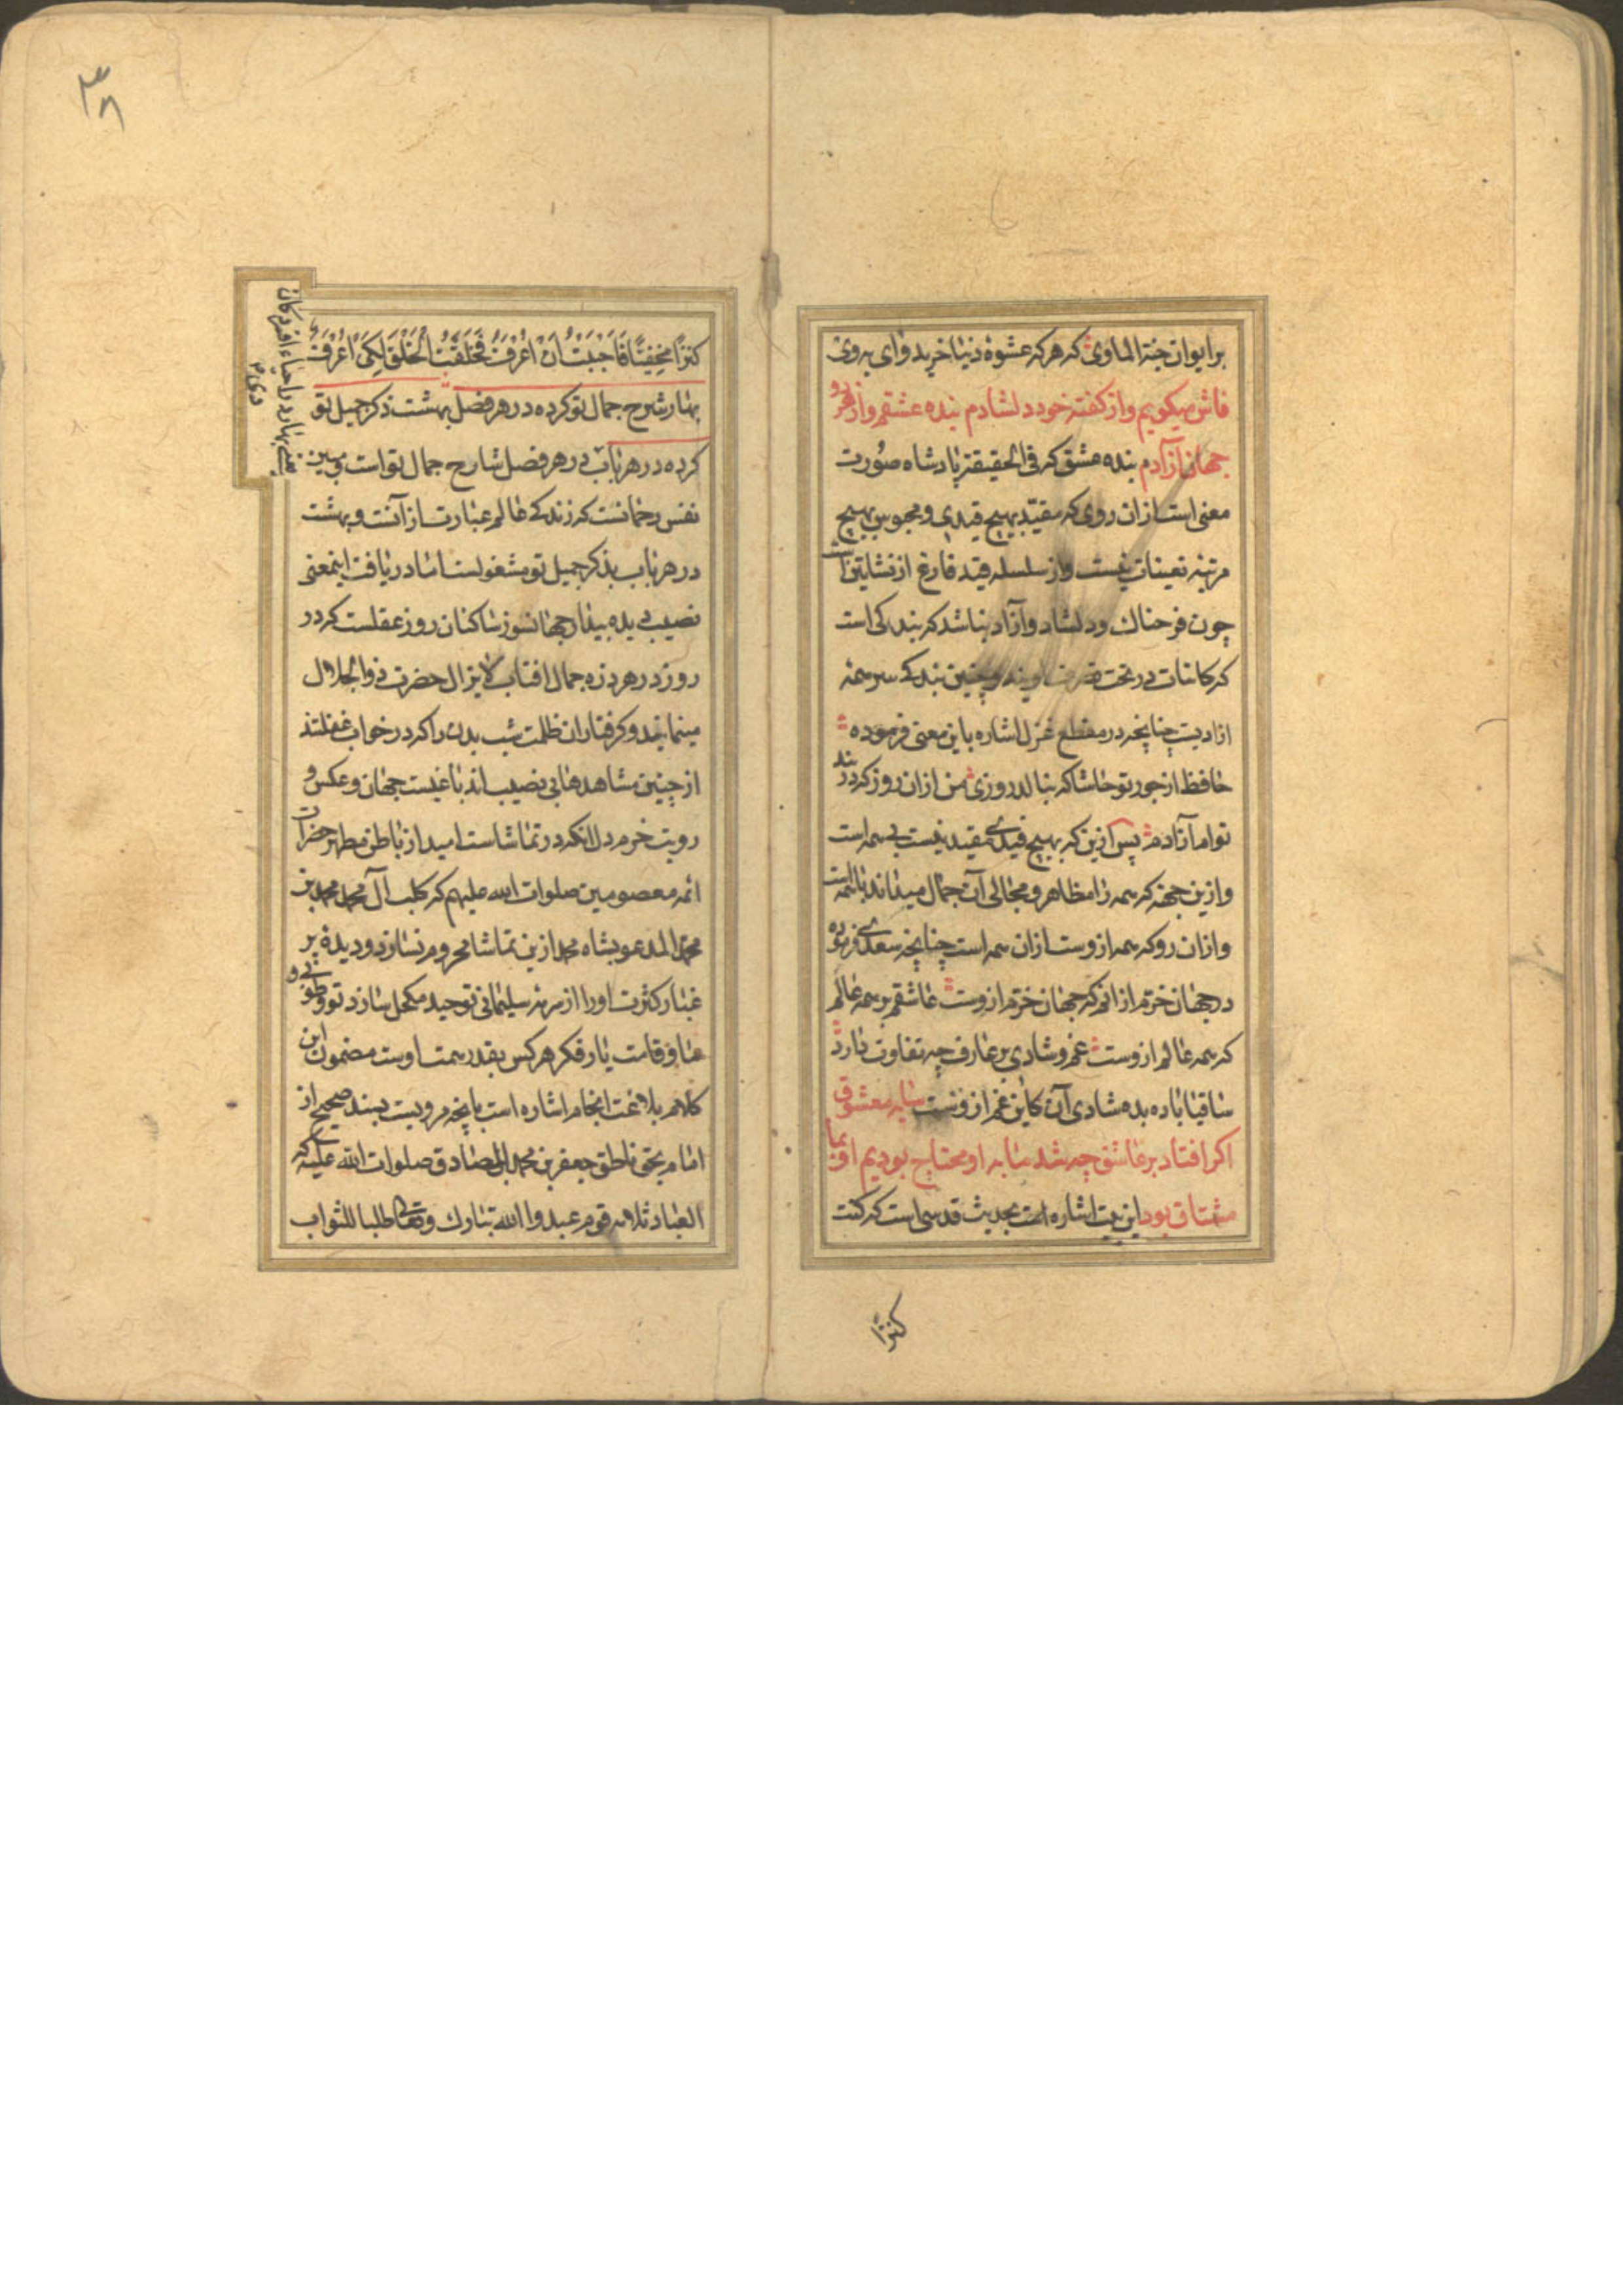 بر ایوان جنة الماوی که هر که عشوۀ دنیا خرید وای به وی
فاش میکویم و از کفتۀ خود دلشادم بنده عشقم و از هر دو
جهان آزادم بنده عشق که فی الحقیقة پادشاه صورت
معنی است از ان روی که مقید بهیچ قیدی و محبوس بهیچ
مرتبۀ تعینات نیست و از سلسله قید فارغ از نشاتین است
چون فرحناک و دلشاد و آزاد نباشد که بندکی است
که کاینات در تحت تصرف اویند و چنین بندکی سرمنه
ازادیست چنانچه در مقطع غزل اشاره باین معنی فرموده
حافظ از جور تو حاشا که بنالد روزی من از ان روز که در بند
توام آزادم پس ازین که بهیچ قیدی مقید نیست بی همه است
و ازین جهة که همه را مظاهر و مجالی آن جمال میداند با همه است
و از ان رو که همه ازوست از ان همه است چنانچه سعدی فرموده
در جهان خرم از انم که جهان خرم ازوست عاشقم بر همه عالم
که همه عالم ازوست غم و شادی بر عارف چه تفاوت دارد
ساقیا باده بده شادی آن کاین غم ازوست سایه معشوق
اکر افتاد بر عاشق چه شد ما به او محتاج بودیم او بما
مشتاق بود این بیت اشاره است بحدیث قدسی است که کنت
کنزًا
۳۸
کنزًا مخفیًّا فَاَحْبَبْتُ اَنْ اُعْرَفَ فَخَلَقْتُ الْخَلْقَ لِکَیْ اُعْرَفَ
بهار شرح جمال تو کرده در هر فصل بهشت ذکر جمیل تو
کرده در هر باب در هر فصل شارح جمال تو است و مبین
نفس رحمانست که زندکی عالم عبارت از آنست و بهشت
در هر باب بذکر جمیل تو مشغولست اما دریافت اینمعنی
نصیب دیده بیدار جهانسوز ساکنان روز عقلست که در
روز در هر ذره جمال افتاب لایزال حضرت ذو الجلال
مینمایند و کرفتاران ظلمت شب بدن را که در خواب غفلتند
از چنین مشاهدها بی نصیب اند باغیست جهان و عکس و
رویت خرم دل انکه در تماشاست امید از باطن مطهر حضرات
ائمه معصومین صلوات الله علیهم که کلب آل محمد محمد بن
محمد المدعو بشاه محمد ازین تماشا محروم نسازد و دیدۀ پر
غبار کثرت او را از سرمۀ سلیمانی توحید مکحل سازد تو و طوبی و
ما و قامت یار فکر هر کس بقدر همت اوست مضمون این
کلام بلاغت انجام اشاره است بانچه مرویست بسند صحیح از
امام بحق ناطق جعفر بن محمد الصادق صلوات الله علیه که
العباد ثلاثه قوم عبدوا الله تبارک و تعالی طلبا للثواب
یعنی بهار را احیاء افسردکان